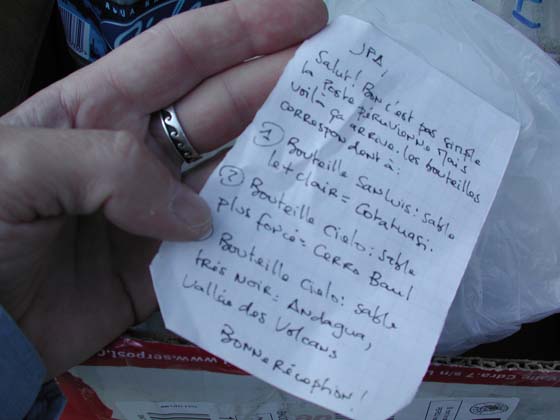 JPA,
Salut! Bon c'est pas simple
la Poste péruvienne mais
voilà ça arrive. Les bouteilles
correspondent à:
1) Bouteille San Luis: sable
le + clair = Cotahuasi.
2) Bouteille Cielo: sable
plus foncé = Cerro Baul
Bouteille Cielo: sable
très noir: Andagua,
Vallée des Volcans
Bonne réception!
www.serpost.com
Cdra. 7 s/n